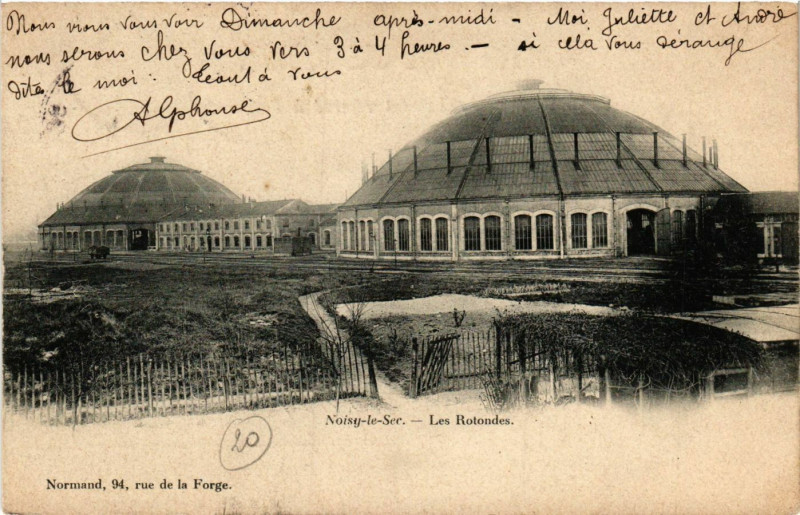 Nous virons vous voir Dimanche après-midi - Moi Juliette et André
nous serons chez vous vers 3 à 4 heures. — si cela vous dérange
dite le moi. tout à vous
Alphonse
Noisy-le-Sec. — Les Rotondes.
20
Normand, 94, rue de la Forge.